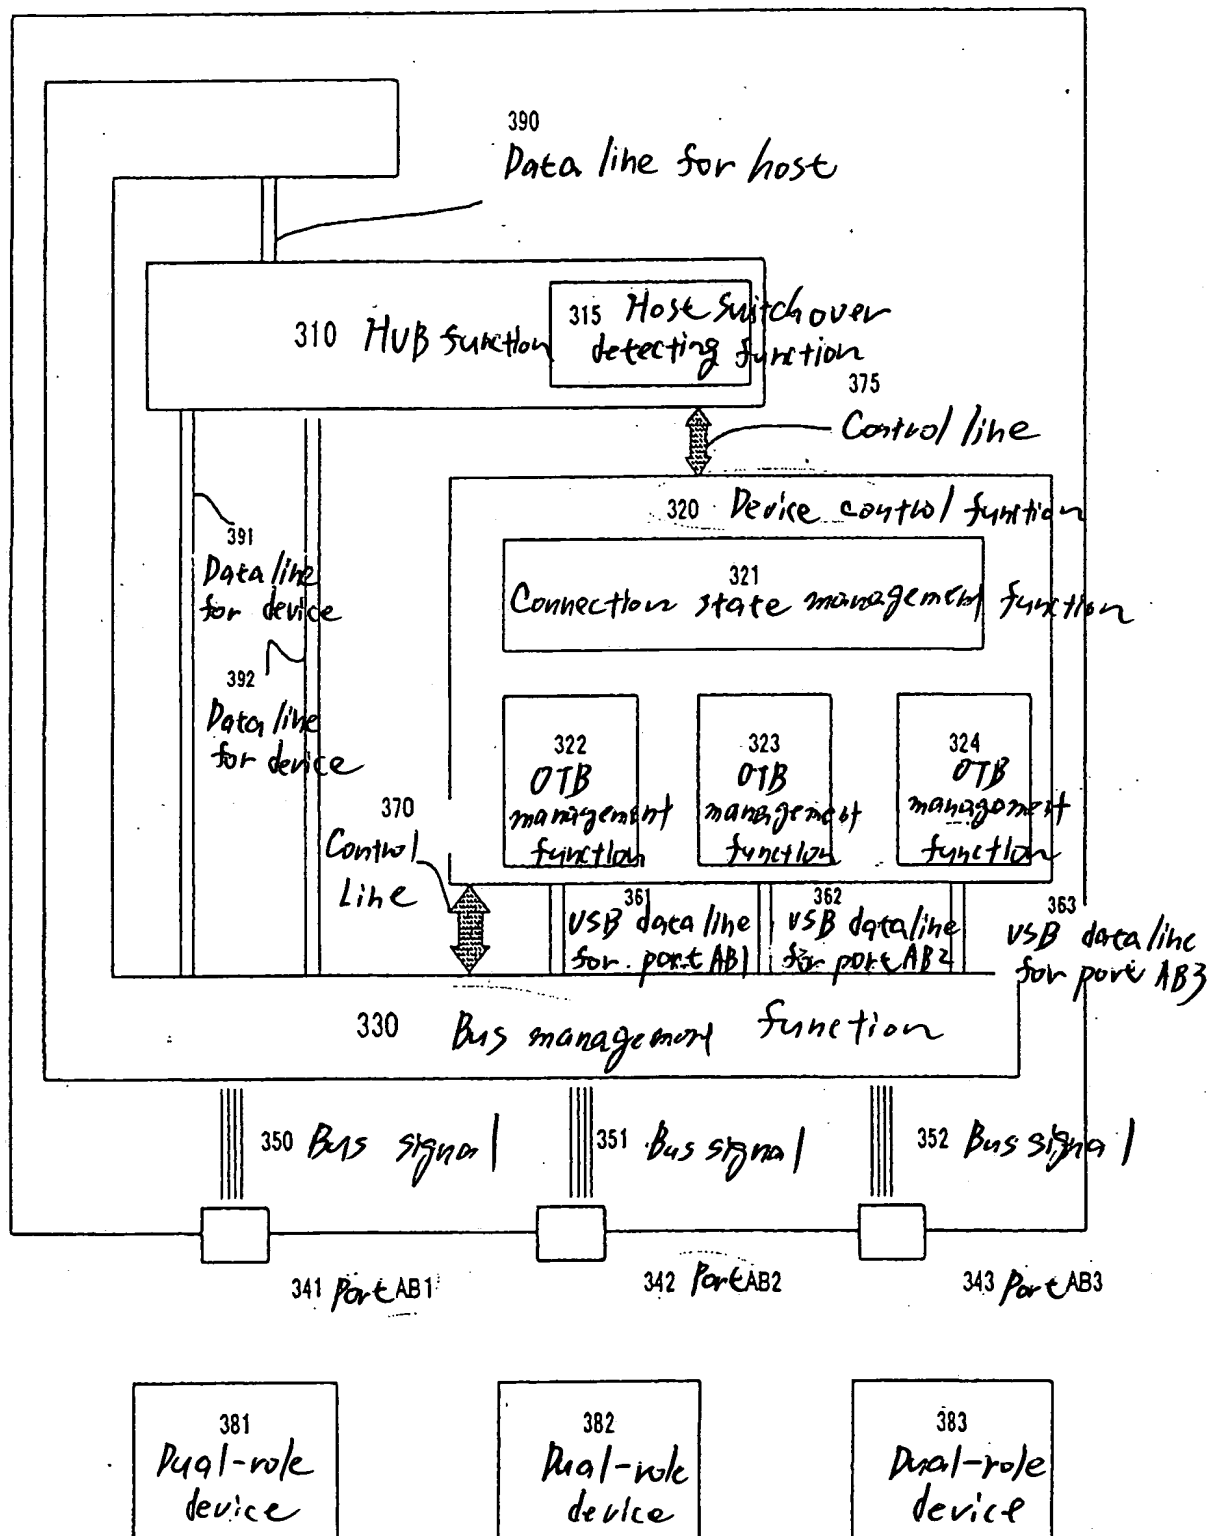 390
Data line for host
310 HUB function
315 Host switchover
detecting function
375
Control line
320 Device control function
321
Connection state management function
391
Data line
for device
392
Data line
for device
322
OTB
management
function
323
OTB
management
function
324
OTB
management
function
370
Control
Line
361
USB data line
for port AB1
362
USB data line
for port AB2
363
USB data line
for port AB3
330 Bus management function
350 Bus signal
351 Bus signal
352 Bus signal
341 Port AB1
342 Port AB2
343 Port AB3
381
Dual-role
device
382
Dual-role
device
383
Dual-role
device